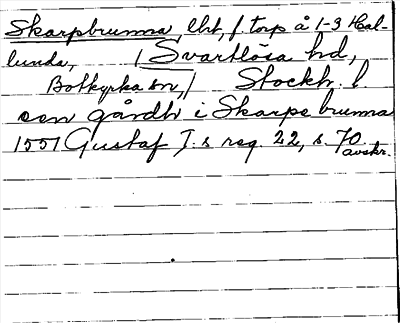 Skarpbrunna, lht, f torp å 1-3 Hal-
lunda, / Svartlösa hd,
Botkyrka sn, / Stockh. l.
een gårdh i Skarpe brunna
1551 Gustaf I:s reg. 22, s. 70
avskr.